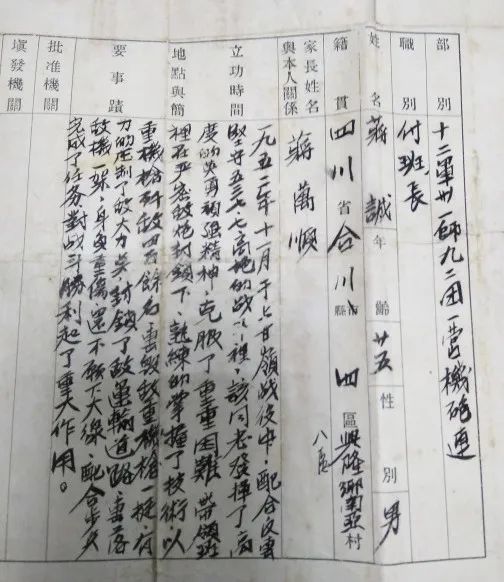 部別 十二軍卅一師九二团一营機砲連
職別 付班長
姓名 蔣誠 年齡 廿五 性別 男
籍貫 四川省合川縣市 四區興隆鄉南亞村
八社
家長姓名與本人關係 蔣萬順
立功時間地點與簡要事蹟
一九五二年十一月于上甘嶺战役中，配合反擊
堅守五三七.七高地的战斗裡，該同志發揮了高
度的英勇頑强精神，克服了重重困難，带領班
裡在严密敵炮封鎖下，熟練的掌握了技術以
重機槍殲敵四百餘名，重毁敵重機槍一挺，有
力的压制了敌火力点，封鎖了敌運輸道路，擊落
敌機一架，身負重傷還不願下火線，配合步兵
完成了任務對战斗勝利起了重大作用。
批准機關
填發機關